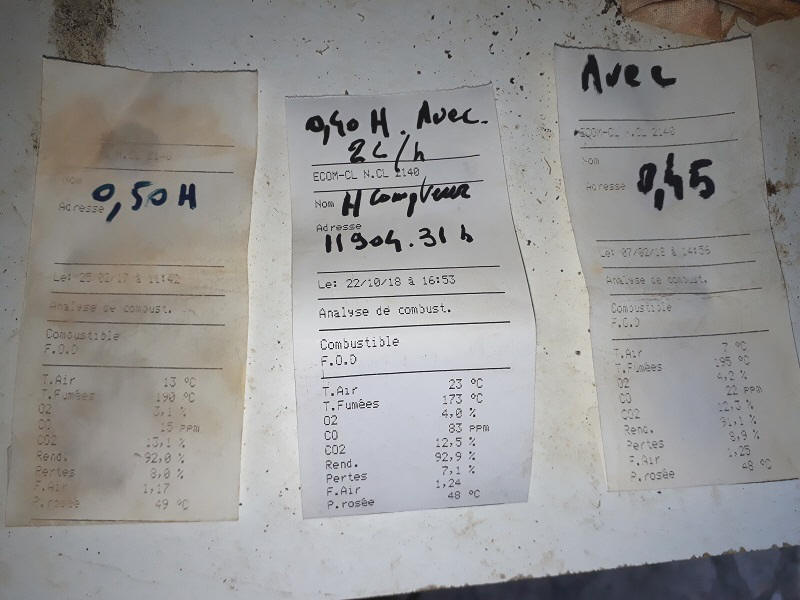 N.CL 2140
Nom
0,50 H
Adresse
Le: 25/02/17 à 11:42
Analyse de combust.
Combustible
F.O.D
T.Air 13 °C
T.Fumées 190 °C
O2 3,1 %
CO 15 ppm
CO2 13,1 %
Rend. 92,0 %
Pertes 8,0 %
F.Air 1,17
P.rosée 49 °C
0,40 H. Avec.
2L/h
ECOM-CL N.CL 2140
Nom H Compteur
Adresse
11904.31 h
Le: 22/10/18 à 16:53
Analyse de combust.
Combustible
F.O.D
T.Air 23 °C
T.Fumées 173 °C
O2 4,0 %
CO 83 ppm
CO2 12,5 %
Rend. 92,9 %
Pertes 7,1 %
F.Air 1,24
P.rosée 48 °C
Avec
ECOM-CL N.CL 2140
Nom
Adresse 0,45
Le: 07/02/18 à 14:56
Analyse de combust.
Combustible
F.O.D
T.Air 7 °C
T.Fumées 195 °C
O2 4,2 %
CO 22 ppm
CO2 12,3 %
Rend. 91,1 %
Pertes 8,9 %
F.Air 1,25
P.rosée 48 °C